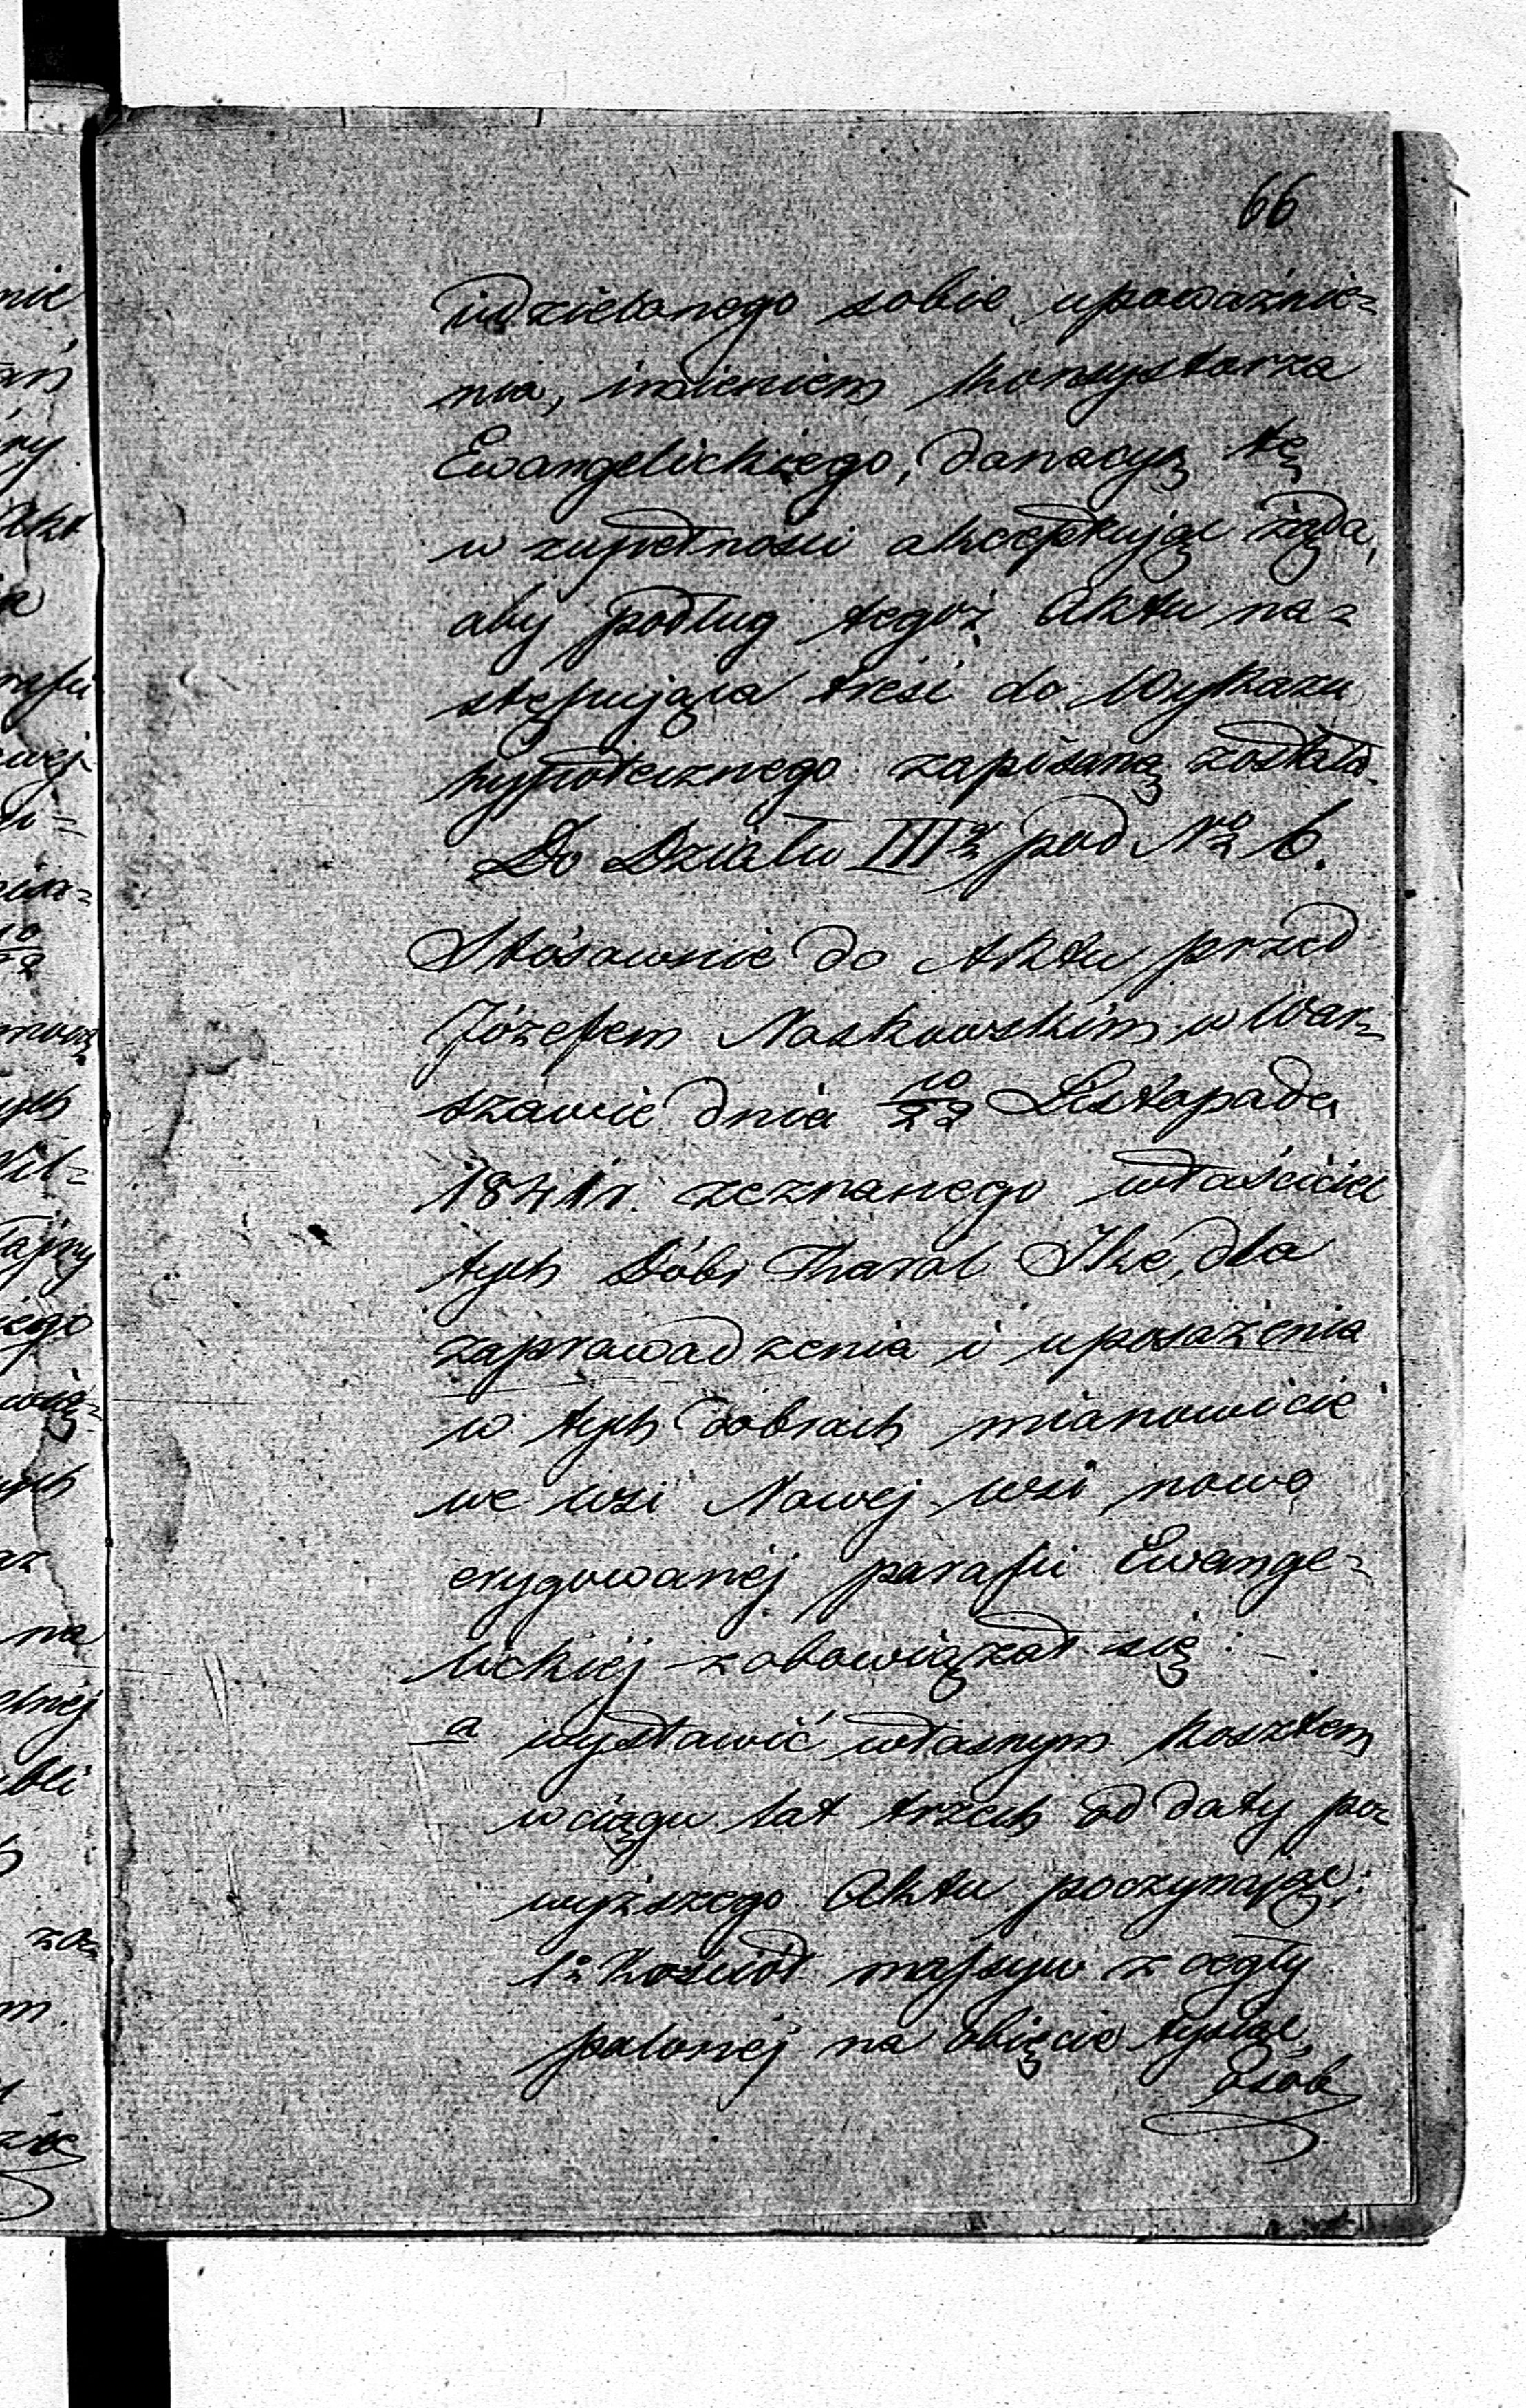 66
udzielonego sobie upoważnie=
nia, imieniem Konsystorza
Ewangelickiego, donacyą tę
w zupełności akceptując żąda,
aby podług tegoż Aktu na=
stępująca treść do Wykazu
hypotecznego zapisaną została.
Do Działu III° pod N° 6.
Stósownie do Aktu przed
Józefem Noskowskim w War=
szawie dnia 10/22 Listopada
1841r. zeznanego właściciel
tych Dóbr Karol Ike, dla
zaprowadzenia i uposażenia
w tych dobrach mianowicie
we wsi Nowej wsi nowo
erygowanéj parafii Ewange=
lickiéj zobowiązał się:
a wystawić własnym kosztem
wciągu lat trzech od daty po=
wyższego Aktu poczynając;
1° Kościół massyw z cegły
palonéj na objęcie tysiąc
osób